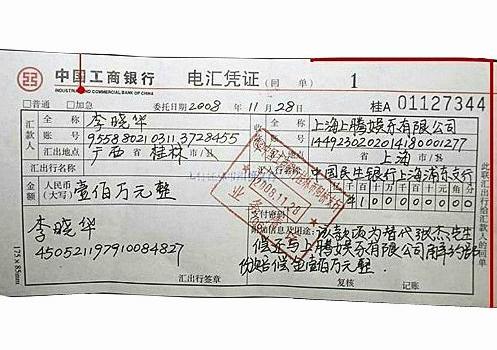 中国工商银行 电汇凭证 (回单) 1
INDUSTRIAL AND COMMERCIAL BANK OF CHINA
□普通 □加急 委托日期 2008 年 11 月 28 日 桂A 01127344
汇款人 全称 李晓华 全称 上海上腾娱乐有限公司
账号 9558802103113728455 1449230202014180001277
汇出地点 广西 省 桂林 市/县 省 上海 市/县
汇出行名称 中国民生银行上海浦东支行
金额 人民币(大写) 壹佰万元整 千百十万千百十元角分
2008.11.28
业务
支付密码
李晓华 附加信息及用途: 该款项为替代张杰先生
450521197910084827 上腾娱乐有限公司解约部
份赔偿金壹佰万元整
汇出行签章 复核 记账
此联汇出行给汇款人的回单
175×85mm